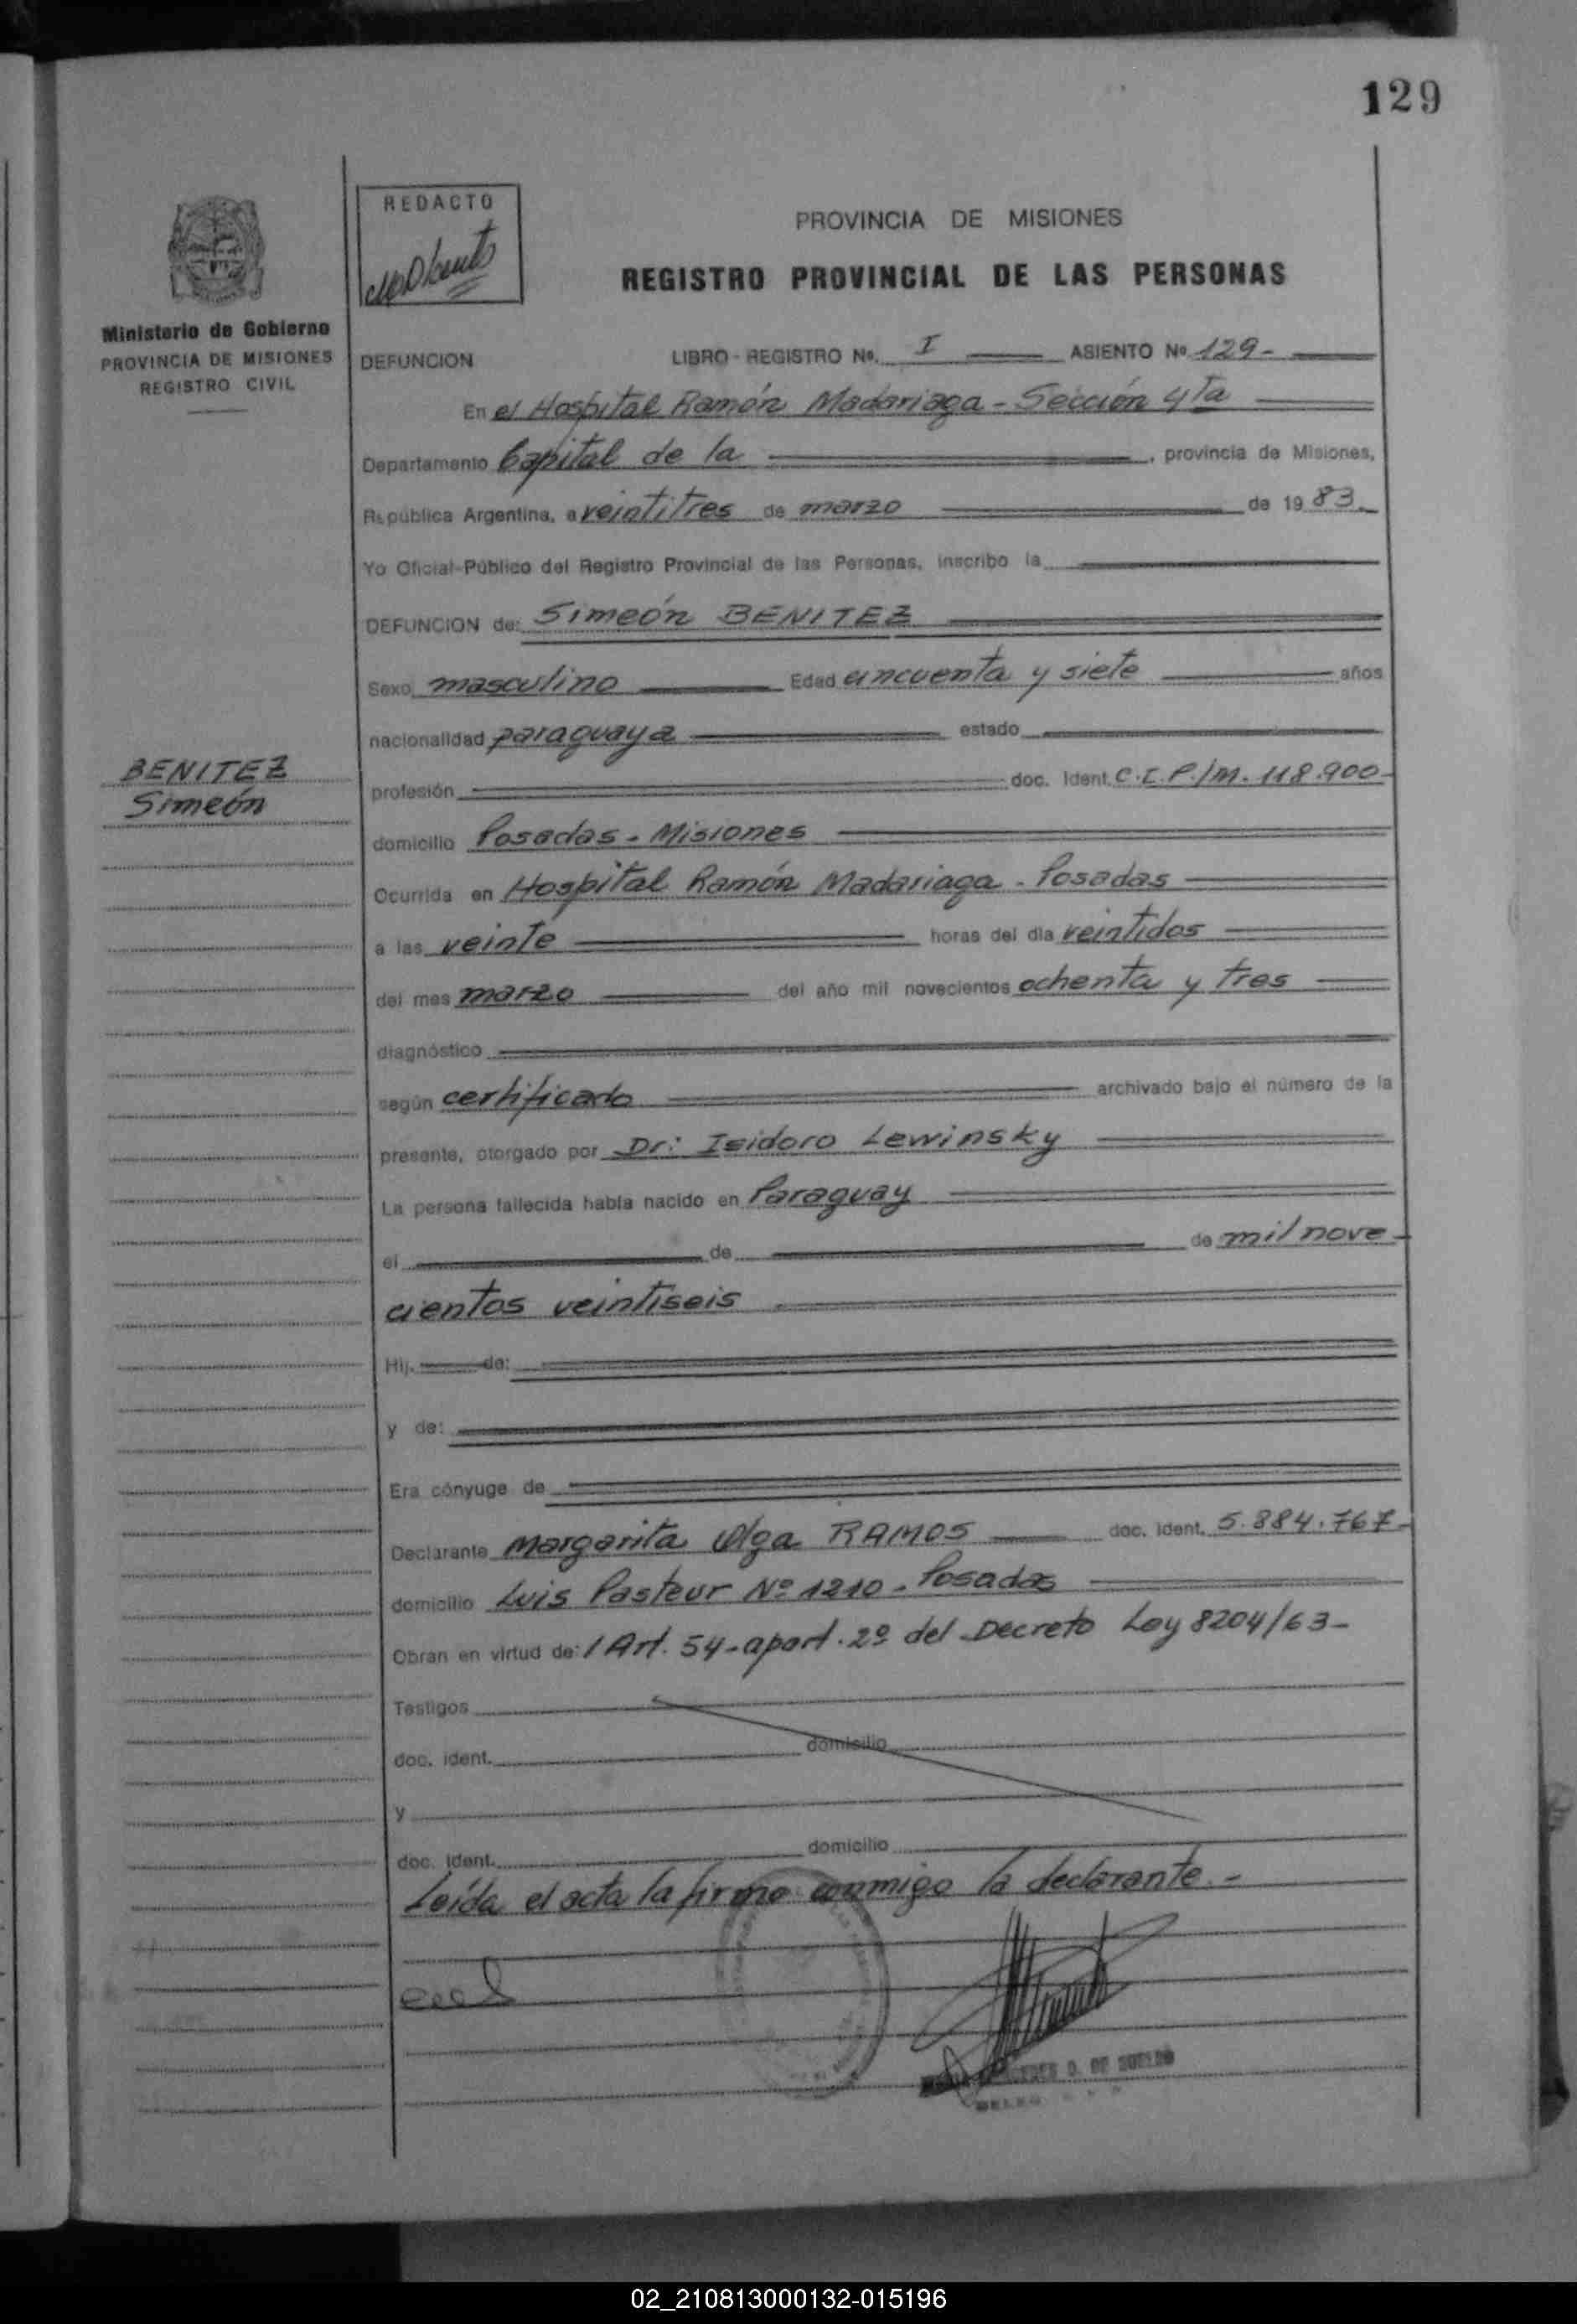 129
REDACTO
PROVINCIA DE MISIONES
REGISTRO PROVINCIAL DE LAS PERSONAS
Ministerio de Gobierno
PROVINCIA DE MISIONES
REGISTRO CIVIL
DEFUNCION LIBRO - REGISTRO No. I ASIENTO No 129-
En el Hospital Ramón Madariaga - Sección 4ta
Departamento Capital de la , provincia de Misiones,
República Argentina, a veintitres de marzo de 19 83.
Yo Oficial Público del Registro Provincial de las Personas, inscribo la
DEFUNCION de: Simeón BENITEZ
Sexo masculino Edad cincuenta y siete años
nacionalidad paraguaya estado
BENITEZ
Simeón
profesión doc. Ident. C.I.P./M. 118.900-
domicilio Posadas - Misiones
Ocurrida en Hospital Ramón Madariaga - Posadas
a las veinte horas del día veintidos
del mes marzo del año mil novecientos ochenta y tres
diagnóstico
según certificado archivado bajo el número de la
presente, otorgado por Dr: Isidoro Lewinsky
La persona fallecida había nacido en Paraguay
el de de mil nove-
cientos veintiseis
Hij. de:
y de:
Era cónyuge de
Declarante Margarita Olga RAMOS doc. Ident. 5.884.767-
domicilio Luis Pasteur Nº 1210 - Posadas
Obran en virtud de: / Art. 54 - apart. 2º del Decreto Ley 8204/63-
Testigos
doc. ident. domicilio
y
doc. ident. domicilio
Leída el acta la firma conmigo la declarante.-
02_210813000132-015196